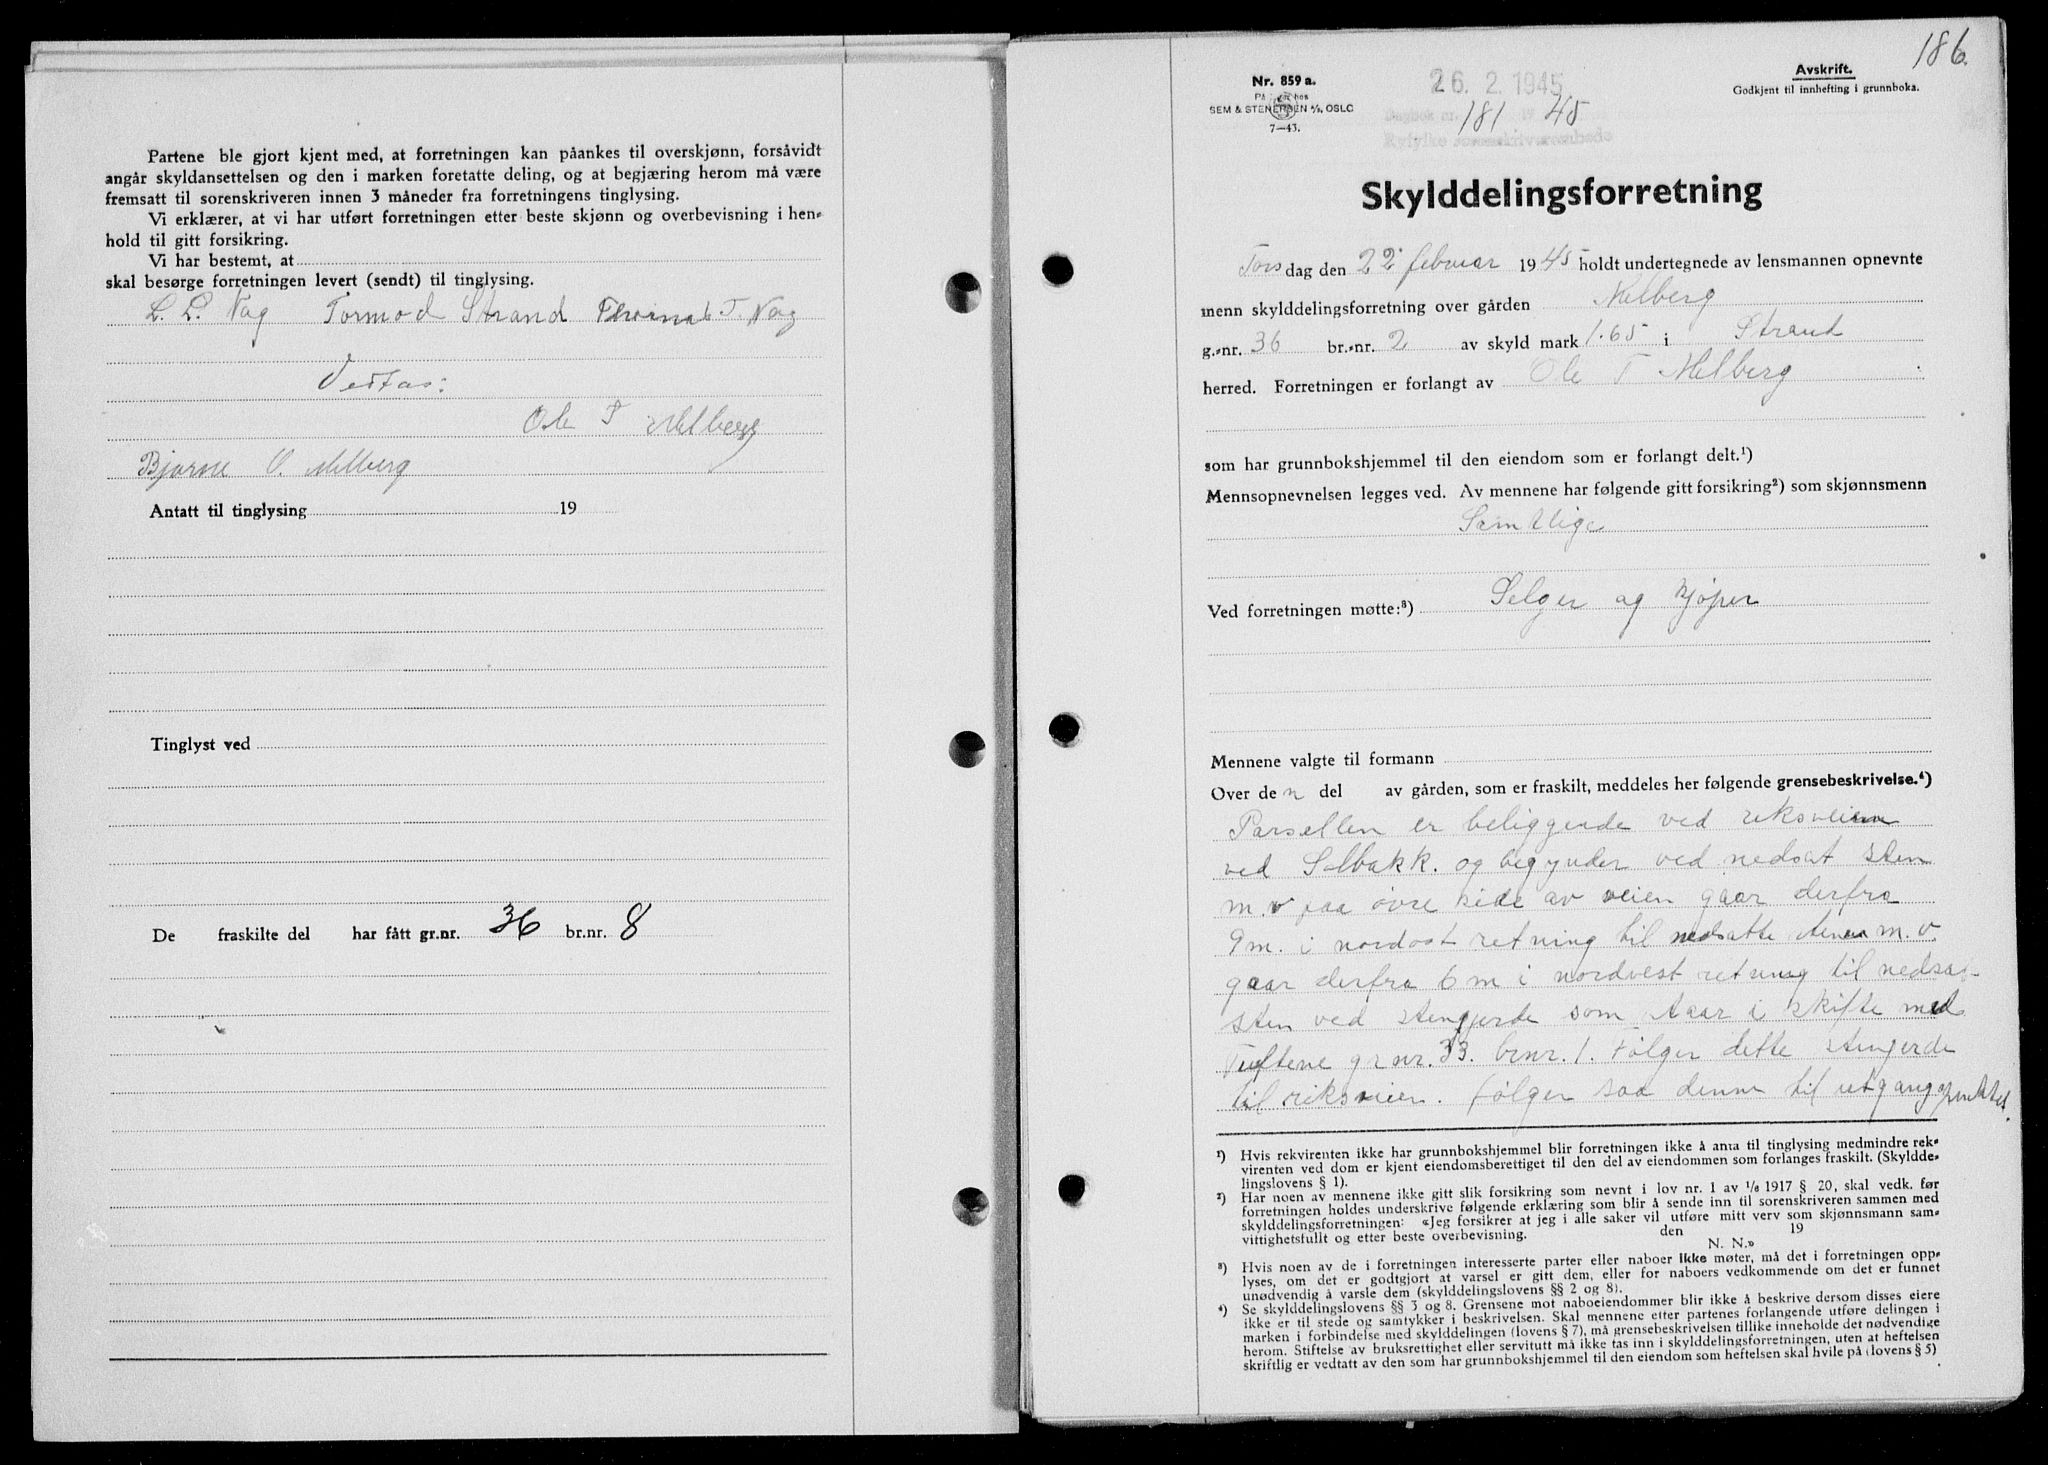 Partene ble gjort kjent med, at forretningen kan påankes til overskjønn, forsåvidt
angår skyldansettelsen og den i marken foretatte deling, og at begjæring herom må være
fremsatt til sorenskriveren innen 3 måneder fra forretningens tinglysing.
Vi erklærer, at vi har utført forretningen etter beste skjønn og overbevisning i hen-
hold til gitt forsikring.
Vi har bestemt, at
skal besørge forretningen levert (sendt) til tinglysing.
L. L. Nag Tormod Strand Thomas T. Nag
Vedtas:
Ole T Melberg
Bjarne O. Melberg
Antatt til tinglysing 19
Tinglyst ved
De fraskilte del har fått gr.nr. 36 br.nr. 8
186.
Nr. 859 a.
På lager hos
SEM & STENERSEN A/S, OSLO
7—43.
26. 2. 1945
Dagbok nr. 181 19 45
Ryfylke sorenskriverembede
Avskrift.
Godkjent til innhefting i grunnboka.
Skylddelingsforretning
Torsdag den 22 februar 1945 holdt undertegnede av lensmannen opnevnte
menn skylddelingsforretning over gården Melberg
g.-nr. 36 br.-nr. 2 av skyld mark 1.65 i Strand
herred. Forretningen er forlangt av Ole T Melberg
som har grunnbokshjemmel til den eiendom som er forlangt delt.¹)
Mennsopnevnelsen legges ved. Av mennene har følgende gitt forsikring²) som skjønnsmenn
Samtlige
Ved forretningen møtte:³) Selger og kjøper
Mennene valgte til formann
Over den del av gården, som er fraskilt, meddeles her følgende grensebeskrivelse.⁴)
Parsellen er beliggende ved riksveien
ved Solbakk. og begynder ved nedsat sten
m. v paa øvre side av veien gaar derfra
9m. i nordost retning til nedsatte sten m. v.
gaar derfra 6 m i nordvest retning til nedsat
sten ved stengjerde som staar i skifte med
Tuftene grnr. 33. brnr. 1. Følger dette stengerde
til riksveien. følger saa denne til utgangspunktet.
¹) Hvis rekvirenten ikke har grunnbokshjemmel blir forretningen ikke å anta til tinglysing medmindre rek-
virenten ved dom er kjent eiendomsberettiget til den del av eiendommen som forlanges fraskilt. (Skyldde-
lingslovens § 1).
²) Har noen av mennene ikke gitt slik forsikring som nevnt i lov nr. 1 av 1/6 1917 § 20, skal vedk. før
forretningen holdes underskrive følgende erklæring som blir å sende inn til sorenskriveren sammen med
skylddelingsforretningen: «Jeg forsikrer at jeg i alle saker vil utføre mitt verv som skjønnsmann sam-
vittighetsfullt og etter beste overbevisning. den 19
N. N.»
³) Hvis noen av de i forretningen interesserte parter eller naboer ikke møter, må det i forretningen opp-
lyses, om det er godtgjort at varsel er gitt dem, eller for naboers vedkommende om det er funnet
unødvendig å varsle dem (skylddelingslovens §§ 2 og 8).
⁴) Se skylddelingslovens §§ 3 og 8. Grensene mot naboeiendommer blir ikke å beskrive dersom disses eiere
ikke er til stede og samtykker i beskrivelsen. Skal mennene etter partenes forlangende utføre delingen i
marken i forbindelse med skylddelingen (lovens § 7), må grensebeskrivelsen tillike inneholde det nødvendige
herom. Stiftelse av bruksrettighet eller servitutt må ikke tas inn i skylddelingsforretningen, uten at heftelsen
skriftlig er vedtatt av den som har grunnbokshjemmel til den eiendom som heftelsen skal hvile på (lovens § 5)